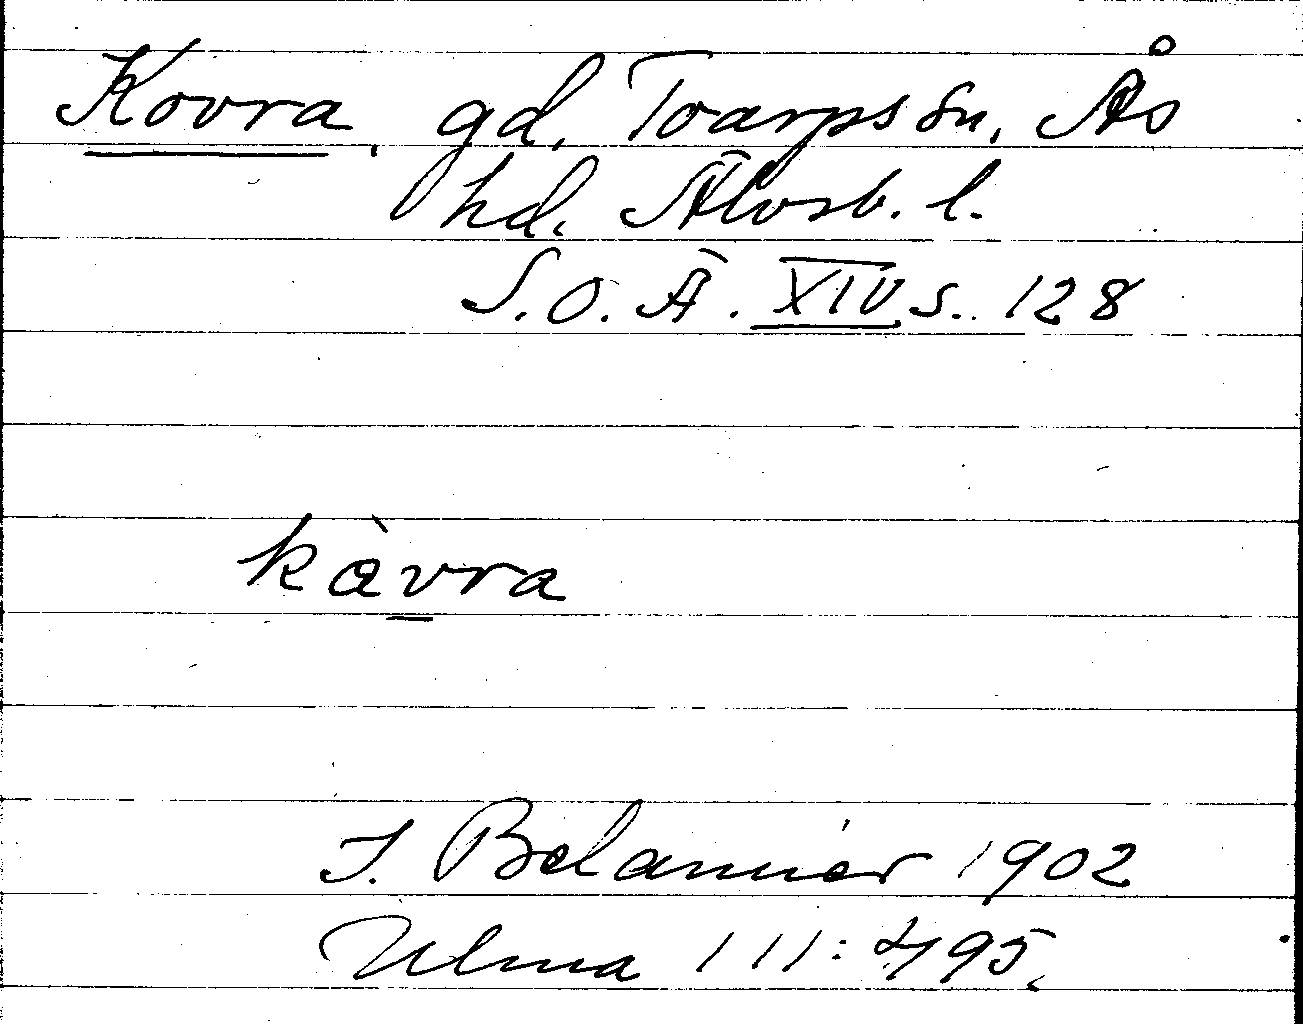 Kovra, gd, Toarps sn, Ås
hd. Älvsb. l.
S.O.Ä. XIV s. 128
kàvra
J. Belannér 1902
Ulma 111:495.